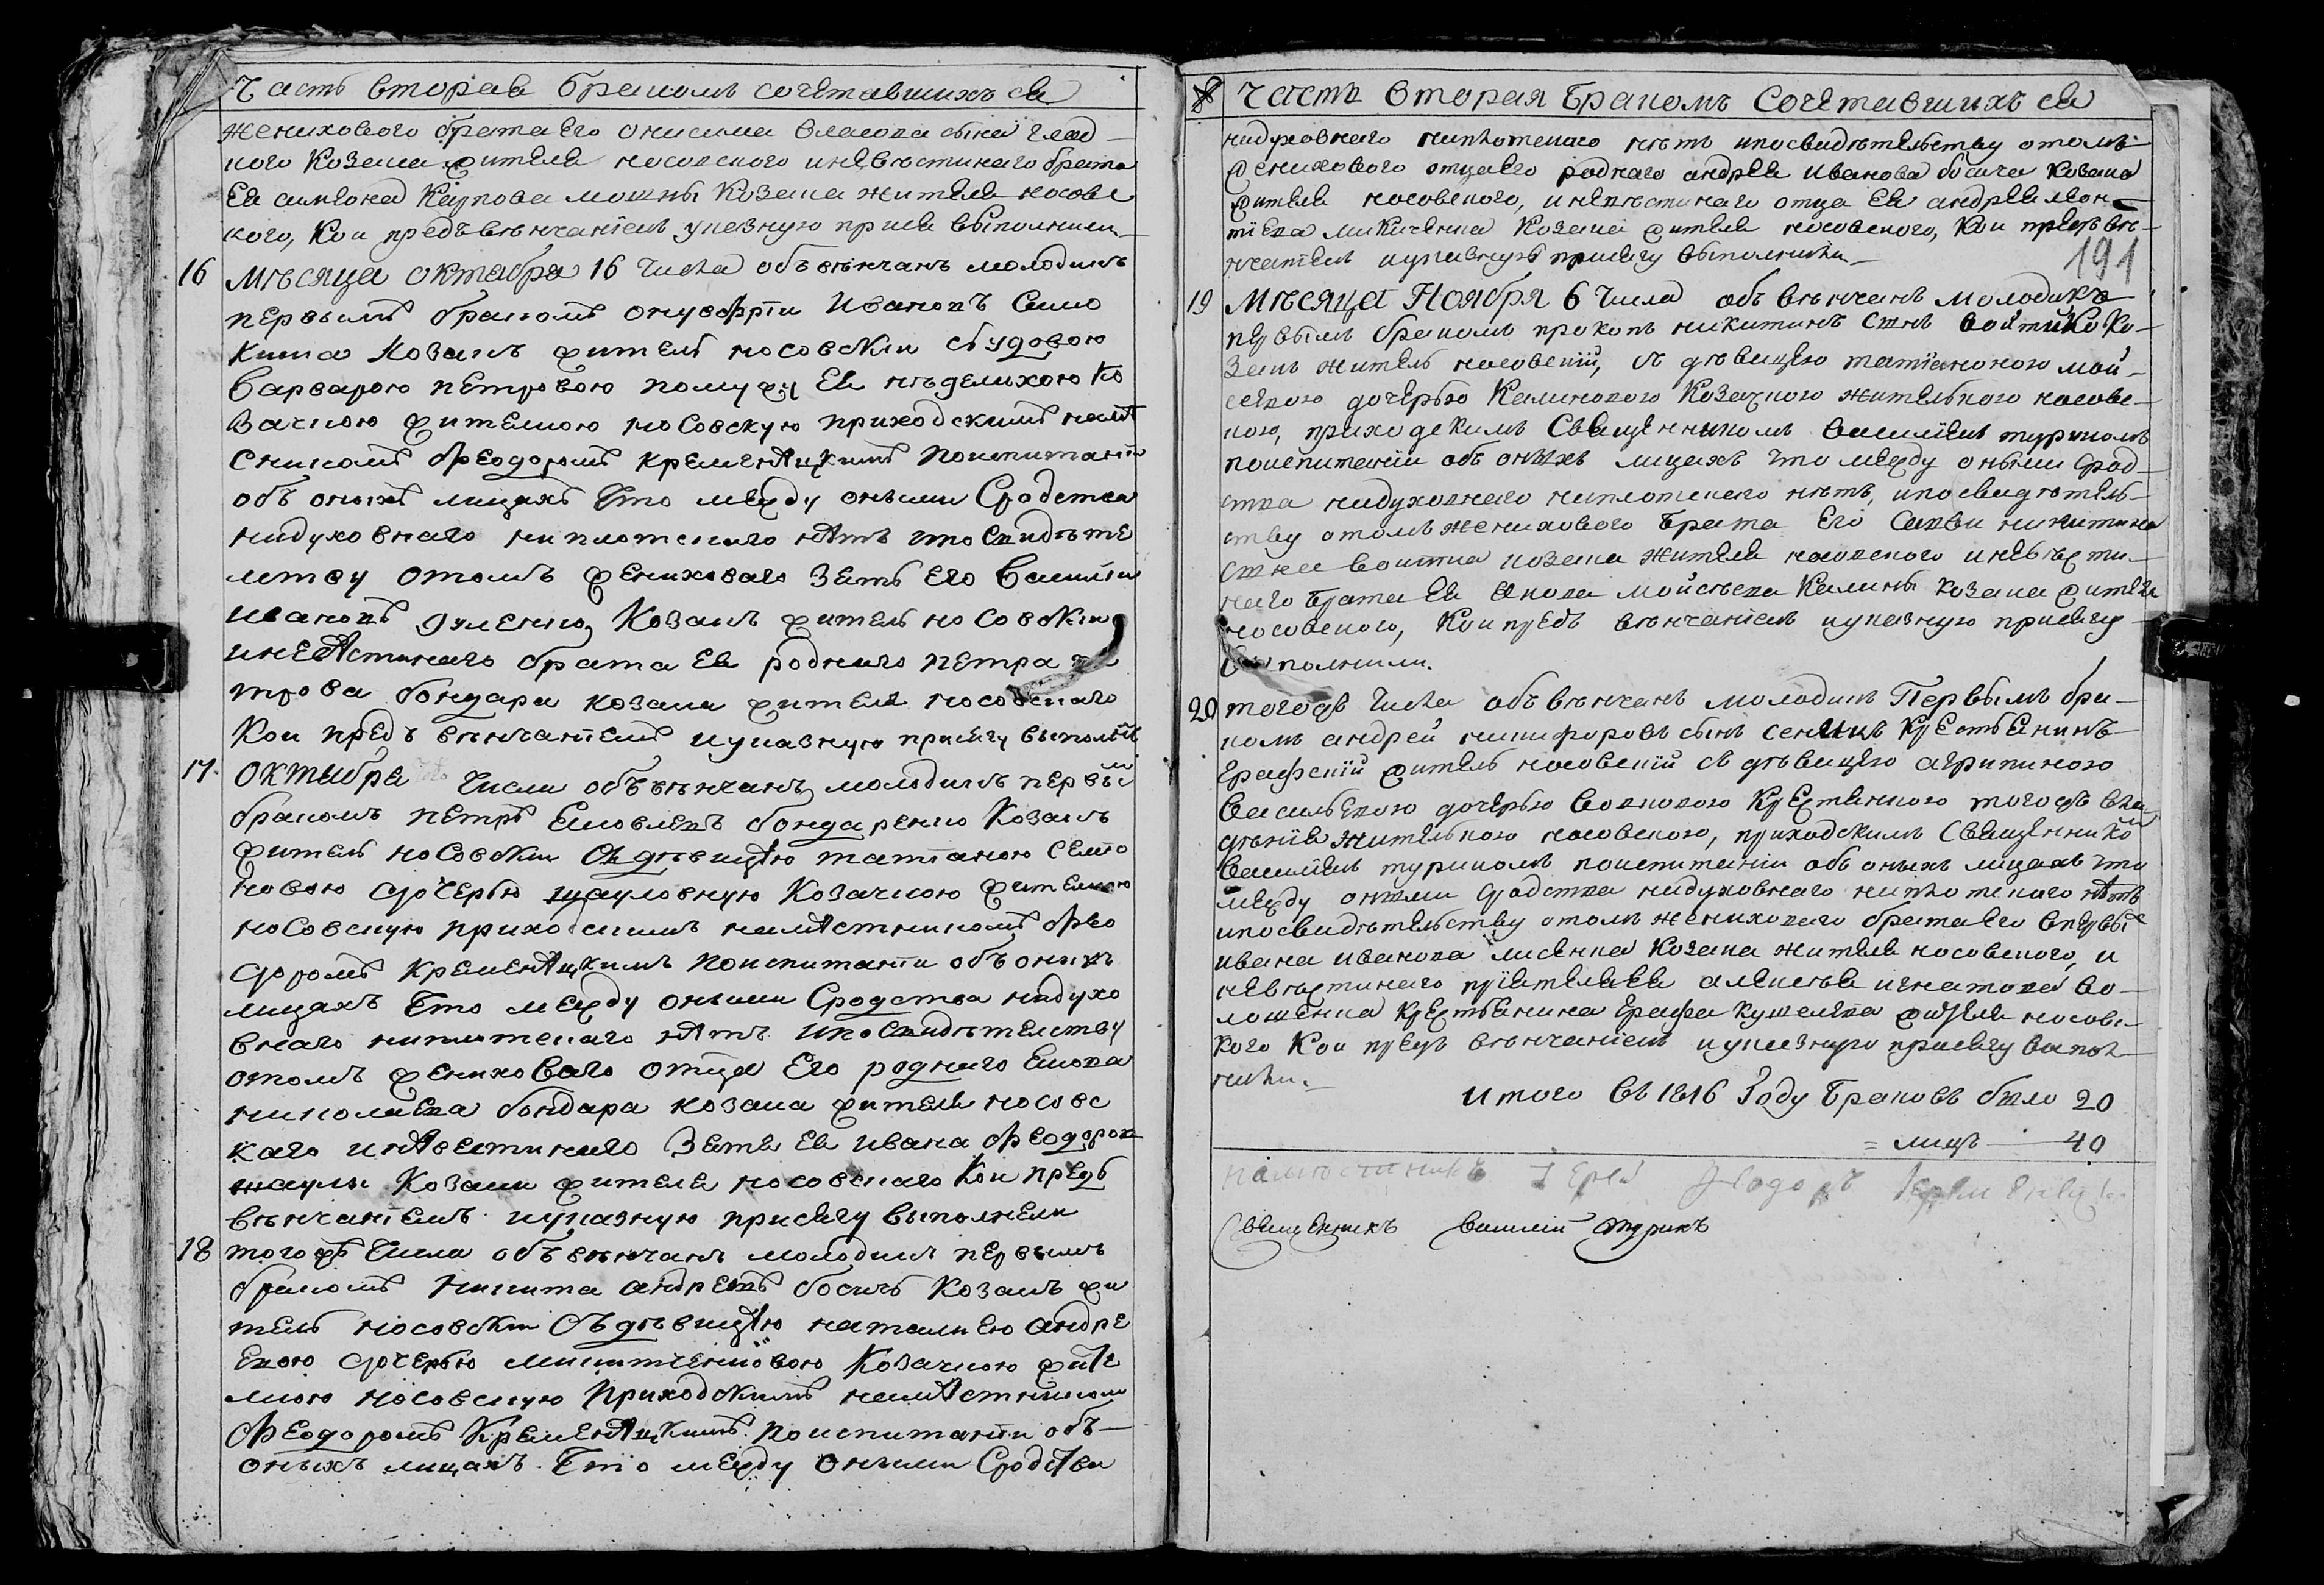 Часть вторая бракомъ сочетавшихъ ся
женихового брата его онисима власова сына глад-
кого Козака жителя носовского иневѣстинаго брата
Ея симеона Карпова мошны Козака жителя носовс
кого, Кои предъ вѣнчаніемъ указную прися выполнили
16 Мѣсяца октабря 16 Числа объ вѣнчанъ молодикъ
первымъ бракомъ онуфрій Ивановъ
Козакъ житель носовскій зъ удовою
Варварою петровою помужу Ея недѣлихою Ко
зачкою жителкою носовскую приходскимъ намѣ
сникомъ Феодоромъ кременѣцкимъ Поиспитаніи
объ оныхъ лицахъ Что между оными Сродства
нидуховнаго ниплотскаго нѣтъ ипосвидѣте
лству отомъ жениховаго Зятъ Его Василій
Ивановъ Козакъ житель носовскій
иневѣстинаго брата Ея роднаго петра пе
трова бондара козака жителя носовскаго
Кои предъ вѣнчаніемъ иуказную присягу выполнѣл
17 Октыбра Числа объвѣнчанъ молодикъ первы
бракомъ петръ Ековлевъ бондаренко Козакъ
житель носовскій Съ дѣвицѣю татіаною Семіо
новою дочерью шауловную Козачкою жителкою
носовскую приходскимъ намѣстникомъ Фео
доромъ кременѣцкимъ Поиспитаніи объ оныхъ
лицахъ Что между оными Сродства нидухо
внаго ниплотскаго нѣтъ ипоСвидѣтелству
отомъ жениховаго отца Его роднаго Екова
николаева бондара козака жителя носовс
каго инѣвестинаго Зятя Ея Ивана Феодоров
шаулы Козака жителя носовскаго Кои предъ
вѣнчаніемъ иуказную присягу выполнели
18 того ж Числа объ вѣнчанъ молодикъ первымъ
бракомъ никита андреевъ босичъ Козакъ жи
тель носовскій Съ дѣвицѣю наталиею андре
Евою дочерью микитченковою Козачкою жите
лкою носовскую Приходскимъ намѣстникомъ
Феодоромъ Кременѣцкимъ Поиспитаніи объ-
оныхъ лицахъ Что между оными Сродства
Часть вторая Бракомъ Сочетавшихъ ся
нидуховнаго ниплотскаго нѣтъ ипосвидѣтельству отомъ
женихового отца его роднаго андрея Иванова босича Козака
жителя носовского, иневѣстинаго отца Ея андрея леон-
тіева микитченка Козака жителя носовского, Кои предъ вѣ-
нчаніемъ иуказную присягу выполнили
191
19 Мѣсяца Ноября 6 Числа объ вѣнчанъ молодикъ
первымъ бракомъ прокопъ никитинъ Сынъ войтыко Ко-
закъ житель носовскій, съ дѣвицею татіаною мой-
сеевою дочерью Калиновою Козачкою жителькою носовс-
кою, приходскимъ Священникомъ василіемъ турикомъ
поиспитаніи объ оныхъ лицахъ что между оными Срод-
ства нидуховнаго ниплотскаго нѣтъ, ипосвидѣтель-
ству отомъ женихового Брата Его Саввы никитина
сына воитка козака жителя носовского иневѣсти-
наго Брата Ея Якова мойсѣева Калины Козака жителя
носовского, Кои предъ вѣнчаніемъ иуказную присягу
выполнили.
20 тогожъ Числа объ вѣнчанъ молодикъ Первымъ бра-
комъ андрей никифоровъ сынъ Крестьянинъ
Графскій житель носовскій съ дѣвицею агрипиною
васильевою дочерью вовковою Крестянкою тогожъ вла
дѣнія жителькою носовскою, приходскимъ Священнико
василіемъ турикомъ поиспитаніи объ оныхъ лицахъ что
между оными сродства нидуховнаго ниплотского нѣтъ
ипосвидѣтельству отомъ женихового брата его впервы
ивана иванова лисенка Козака жителя носовского, и
невѣстинаго пріятеля Ея алексѣя игнатова во-
лошенка Крестьянина Графа Кушелева жителя носовс-
кого Кои предъ вѣнчаніемъ иуказную присягу выпол-
нили.
итого въ 1816 Году Браковъ было 20
= лицъ 40
намѣстникъ Іерей Феодоръ Кременец
Священникъ василій турикъ